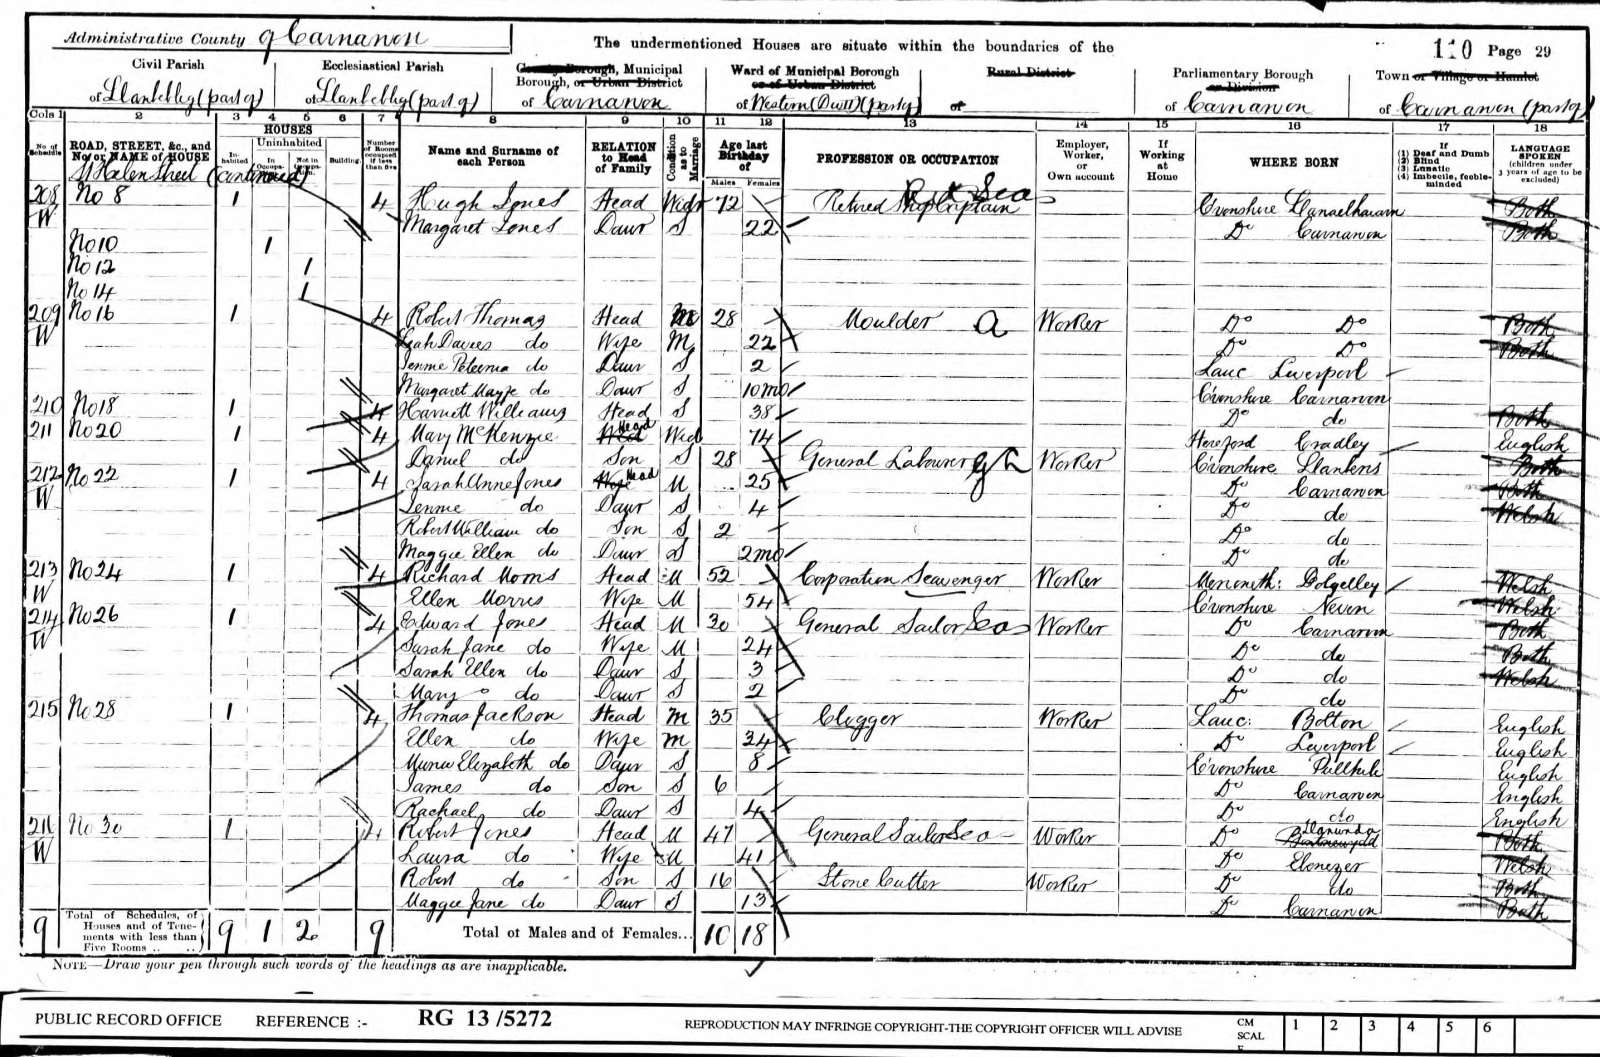 Administrative County of Carnarvon
The undermentioned Houses are situate within the boundaries of the
110 Page 29
Civil Parish
of Llanbeblig (part of)
Ecclesiastical Parish
of Llanbeblig (part of)
County Borough, Municipal Borough, or Urban District
of Carnarvon
Ward of Municipal Borough or of Urban District
of Western (part of)
Rural District
of
Parliamentary Borough or Division
of Carnarvon
Town or Village or Hamlet
of Carnarvon (part of)
Cols 1 2 3 4 5 6 7 8 9 10 11 12 13 14 15 16 17 18
No. of Schedule
ROAD, STREET, &c., and No. or NAME of HOUSE
HOUSES
Inhabited
Uninhabited
In Occupation
Not in Occupation
Building
Number of Rooms occupied if less than five
Name and Surname of each Person
RELATION to Head of Family
Condition as to Marriage
Age last Birthday of
Males Females
PROFESSION OR OCCUPATION
Employer, Worker, or Own account
If Working at Home
WHERE BORN
If
(1) Deaf and Dumb
(2) Blind
(3) Lunatic
(4) Imbecile, feeble-minded
LANGUAGE SPOKEN (children under 3 years of age to be excluded)
St Helen Street (continued)
208 W No 8 1 4 Hugh Jones Head Widr 72 Retired Ship Captain Ret Sea C'vonshire Llanaelhaiarn Both
Margaret Jones Daur S 22 Do Carnarvon Both
No 10 1
No 12 1
No 14 1
209 W No 16 1 4 Robert Thomas Head M 28 Moulder a Worker Do Do Both
Davies do Wife M 22 Do Do Both
Jennie do Daur S 2 Lanc Liverpool
Margaret do Daur S 10mo C'vonshire Carnarvon
210 No 18 1 4 Harriett Williams Head S 38 Do do Both
211 No 20 1 4 Mary McKenzie Head Wid 74 Hereford Cradley English
Daniel do Son S 28 General Labourer GL Worker C'vonshire Both
212 W No 22 1 4 Sarah Anne Jones Wife Head M 25 Do Carnarvon Both
Jennie do Daur S 4 Do do Welsh
Robert William do Son S 2 Do do
Maggie Ellen do Daur S 2mo Do do
213 W No 24 1 4 Richard Morris Head M 52 Corporation Scavenger Worker Merioneth: Dolgelley Welsh
Ellen Morris Wife M 54 C'vonshire Nevin Welsh
214 W No 26 1 4 Edward Jones Head M 30 General Sailor Sea Worker Do Carnarvon Both
Sarah Jane do Wife M 24 Do do Both
Sarah Ellen do Daur S 3 Do do Welsh
Mary do Daur S 2 Do do
215 No 28 1 4 Thomas Jackson Head M 35 Clogger Worker Lanc: Bolton English
Ellen do Wife M 34 Do Liverpool English
Elizabeth do Daur S 8 C'vonshire Pwllheli English
James do Son S 6 Do Carnarvon English
Rachael do Daur S 4 Do do English
216 W No 30 1 4 Robert Jones Head M 47 General Sailor Sea Worker Do Llanwnda Bontnewydd Both
Laura do Wife M 41 Do Ebenezer Welsh
Robert do Son S 16 Stone Cutter Worker Do do Both
Maggie Jane do Daur S 13 Do Carnarvon Both
9 Total of Schedules, of Houses and of Tenements with less than Five Rooms 9 1 2 9 Total of Males and of Females... 10 18
NOTE—Draw your pen through such words of the headings as are inapplicable.
PUBLIC RECORD OFFICE REFERENCE :- RG 13 /5272 REPRODUCTION MAY INFRINGE COPYRIGHT-THE COPYRIGHT OFFICER WILL ADVISE CM SCALE 1 2 3 4 5 6